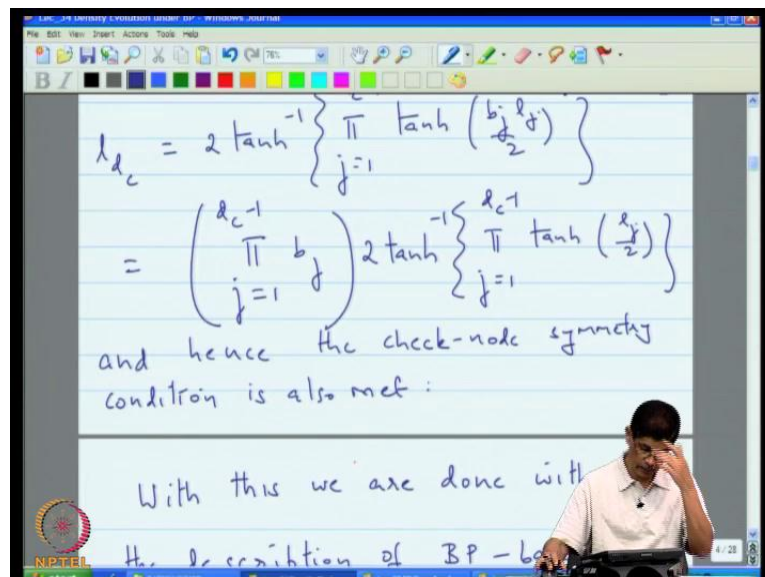 Lec_34 Density Evolution under BP - Windows Journal
File Edit View Insert Actions Tools Help
76%
B I
l_{d_c} = 2 tanh^{-1} { π_{j=1} tanh ( b_j l_j / 2 ) }
= ( π_{j=1}^{d_c-1} b_j ) 2 tanh^{-1} { π_{j=1}^{d_c-1} tanh ( l_j / 2 ) }
and hence the check-node symmetry
condition is also met :
With this we are done with
the description of BP -
4 / 28
NPTEL